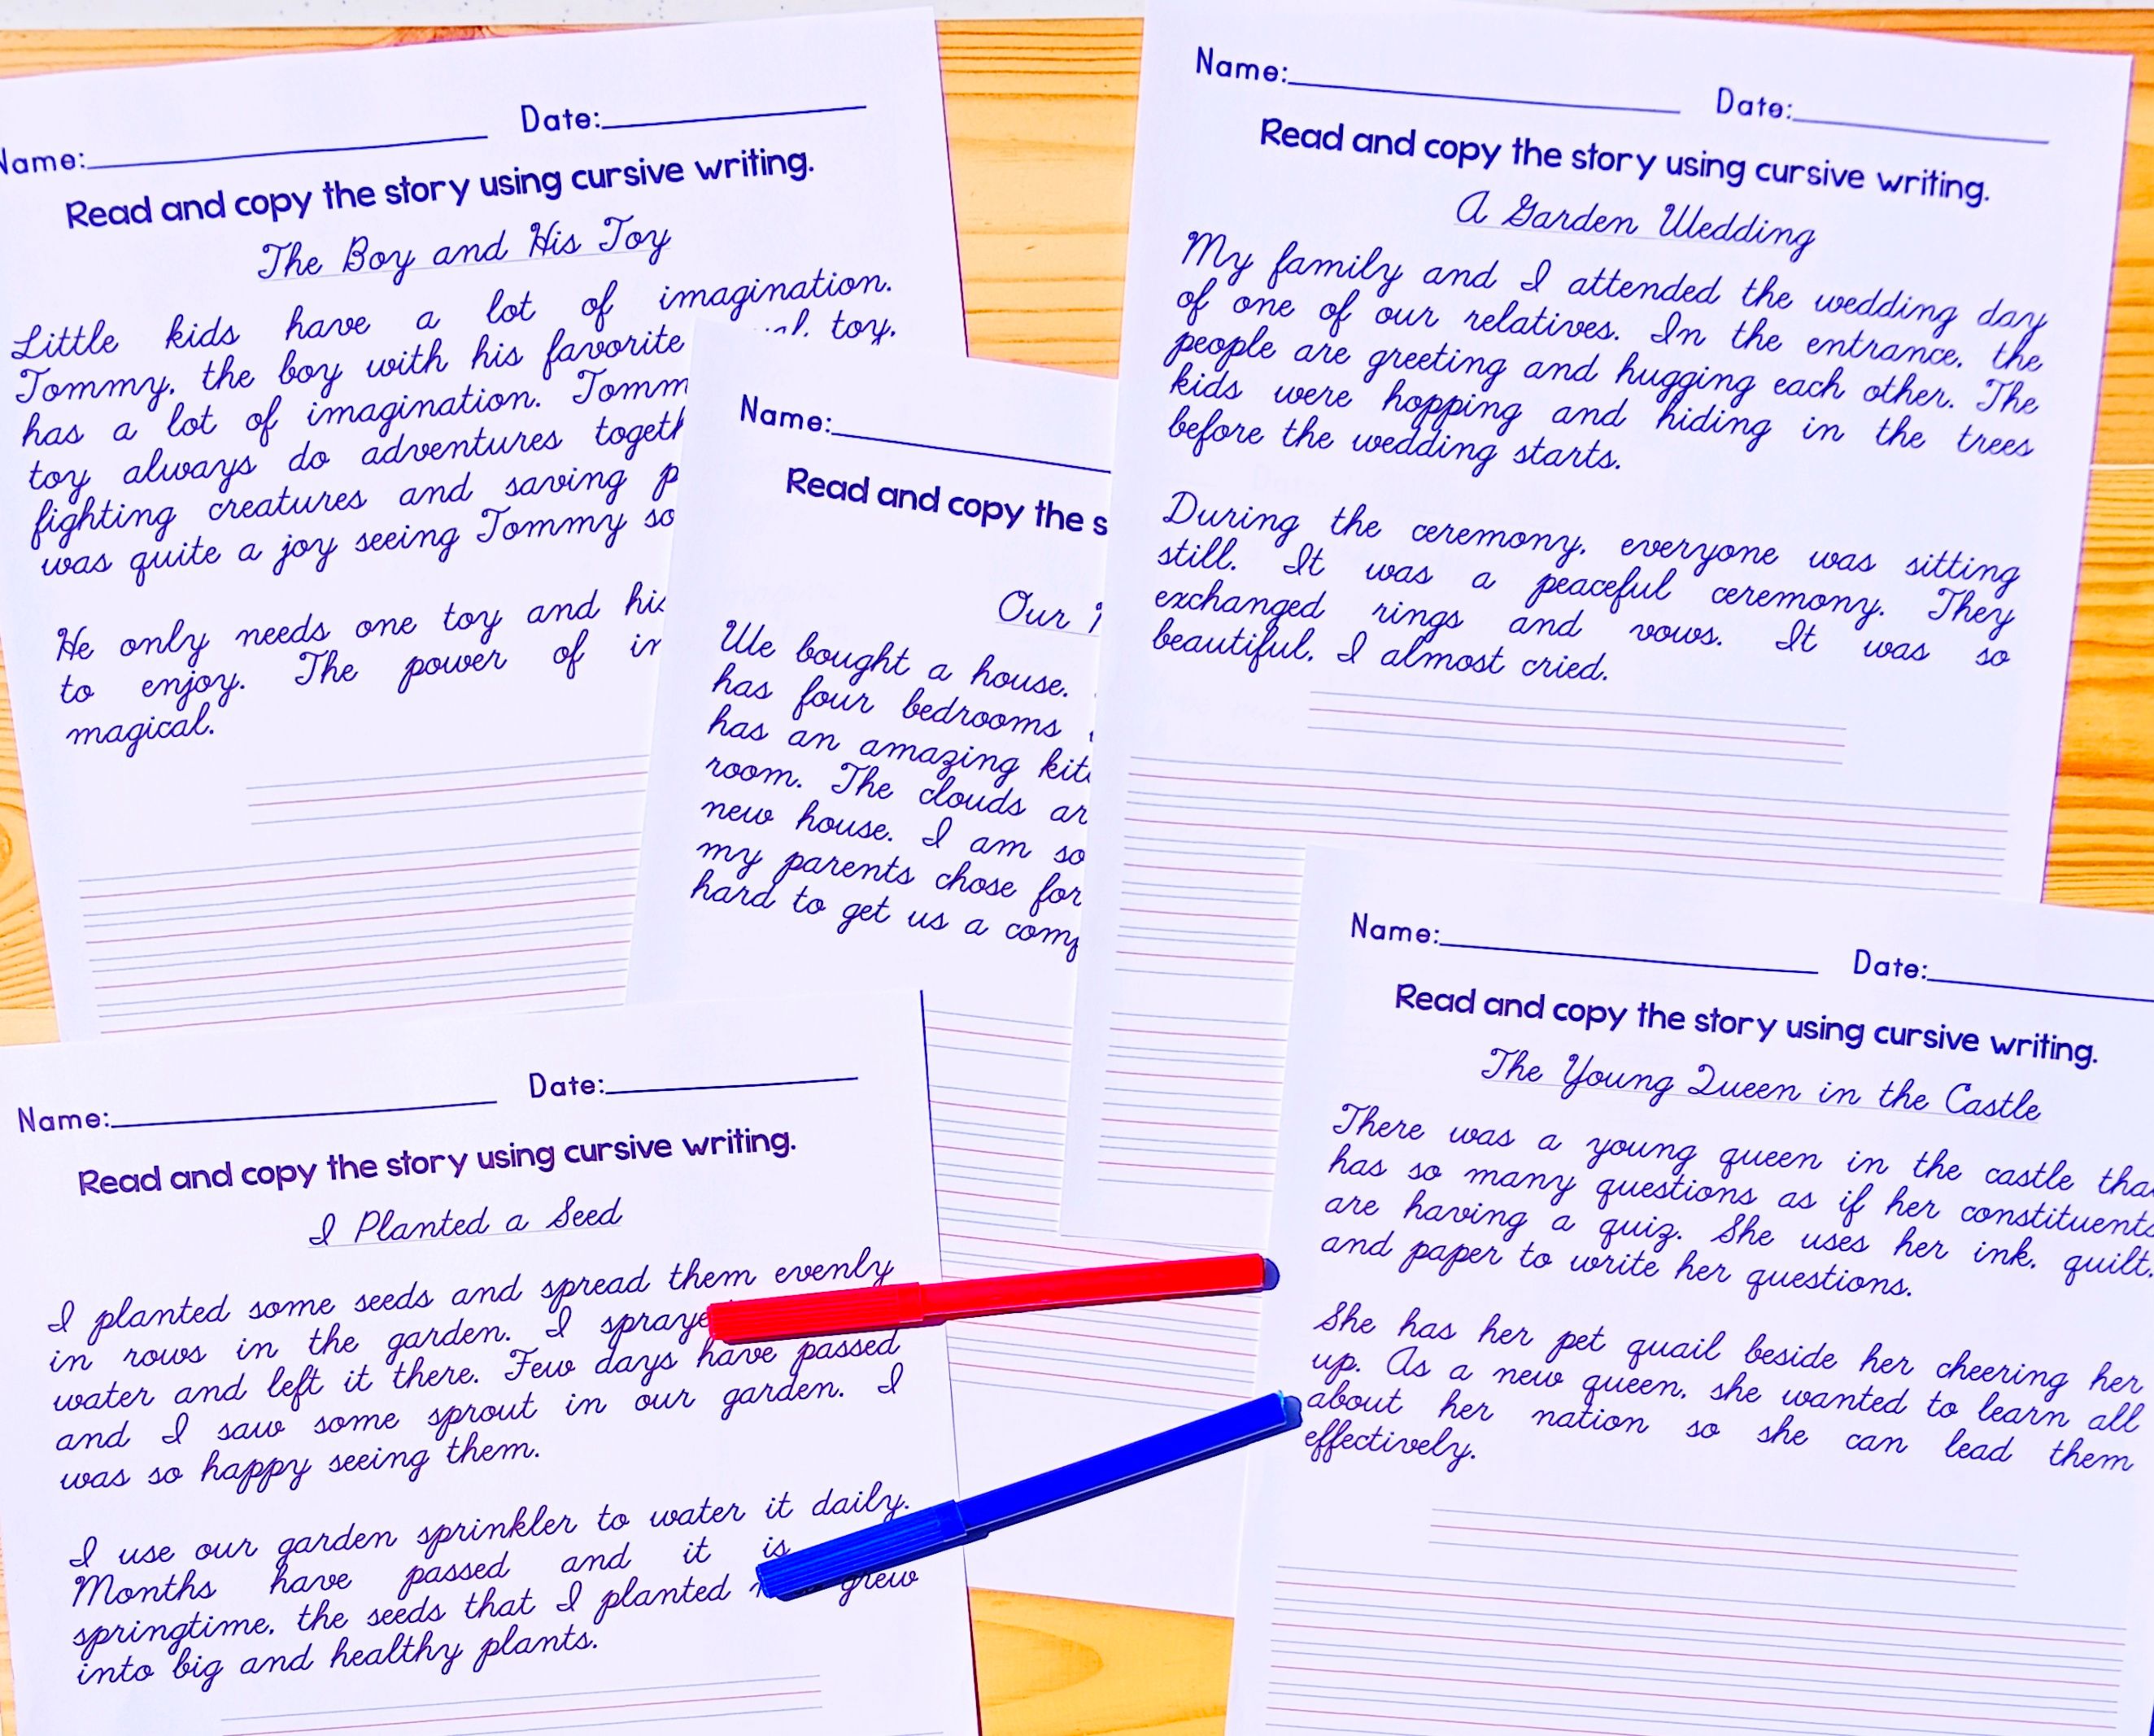 Name: Date:
Read and copy the story using cursive writing.
The Boy and His Toy
Little kids have a lot of imagination.
Tommy, the boy with his favorite toy,
has a lot of imagination.
toy always do adventures
fighting creatures and saving
was quite a joy seeing Tommy so
He only needs one toy and his
to enjoy. The power of
magical.
Name:
Read and copy the
Our
We bought a house.
has four bedrooms
has an amazing
room. The clouds
new house. I am so
my parents chose for
hard to get us a
Name: Date:
Read and copy the story using cursive writing.
A Garden Wedding
My family and I attended the wedding day
of one of our relatives. In the entrance, the
people are greeting and hugging each other. The
kids were hopping and hiding in the trees
before the wedding starts.
During the ceremony, everyone was sitting
still. It was a peaceful ceremony. They
exchanged rings and vows. It was so
beautiful, I almost cried.
Name: Date:
Read and copy the story using cursive writing.
I Planted a Seed
I planted some seeds and spread them evenly
in rows in the garden. I
water and left it there. Few days have passed
and I saw some sprout in our garden. I
was so happy seeing them.
I use our garden sprinkler to water it daily.
Months have passed and it is
springtime, the seeds that I planted grew
into big and healthy plants.
Name: Date:
Read and copy the story using cursive writing.
The Young Queen in the Castle
There was a young queen in the castle
has so many questions as if her constituents
are having a quiz. She uses her ink, quilt,
and paper to write her questions.
She has her pet quail beside her cheering her
up. As a new queen, she wanted to learn all
about her nation so she can lead them
effectively.